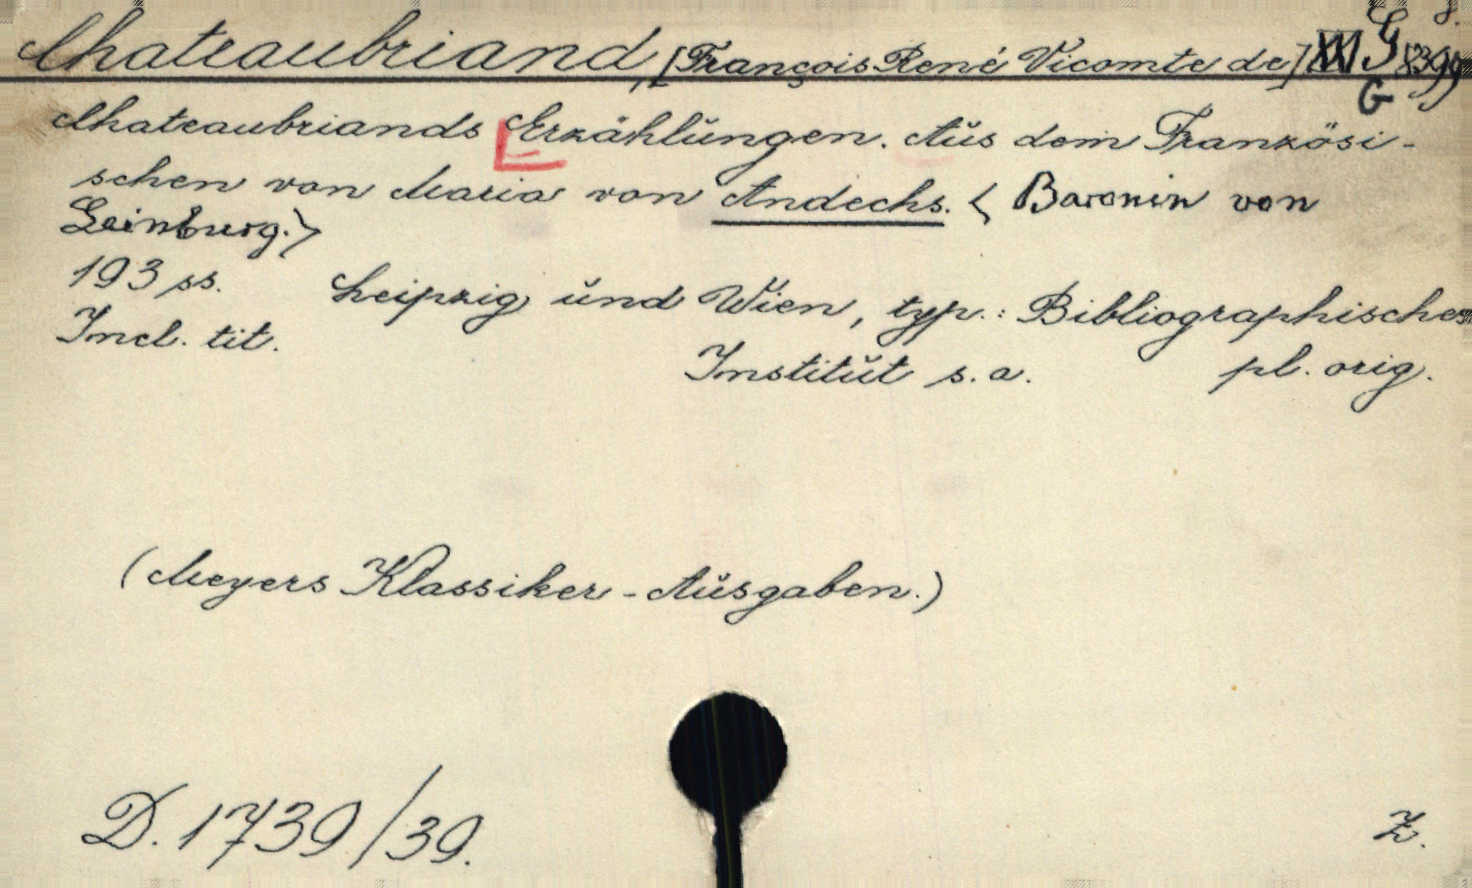 Chateaubriand, [François René Vicomte de] G 8399
8.
G
Chateaubriands Erzählungen. Aus dem Französi-
schen von Maria von Andechs. < Baronin von
Leinburg. >
193 ss. Leipzig und Wien, typ.: Bibliographisches
Incl. tit. Institut s. a. pl. orig.
(Meyers Klassiker-Ausgaben.)
D. 1739/39.
Z.